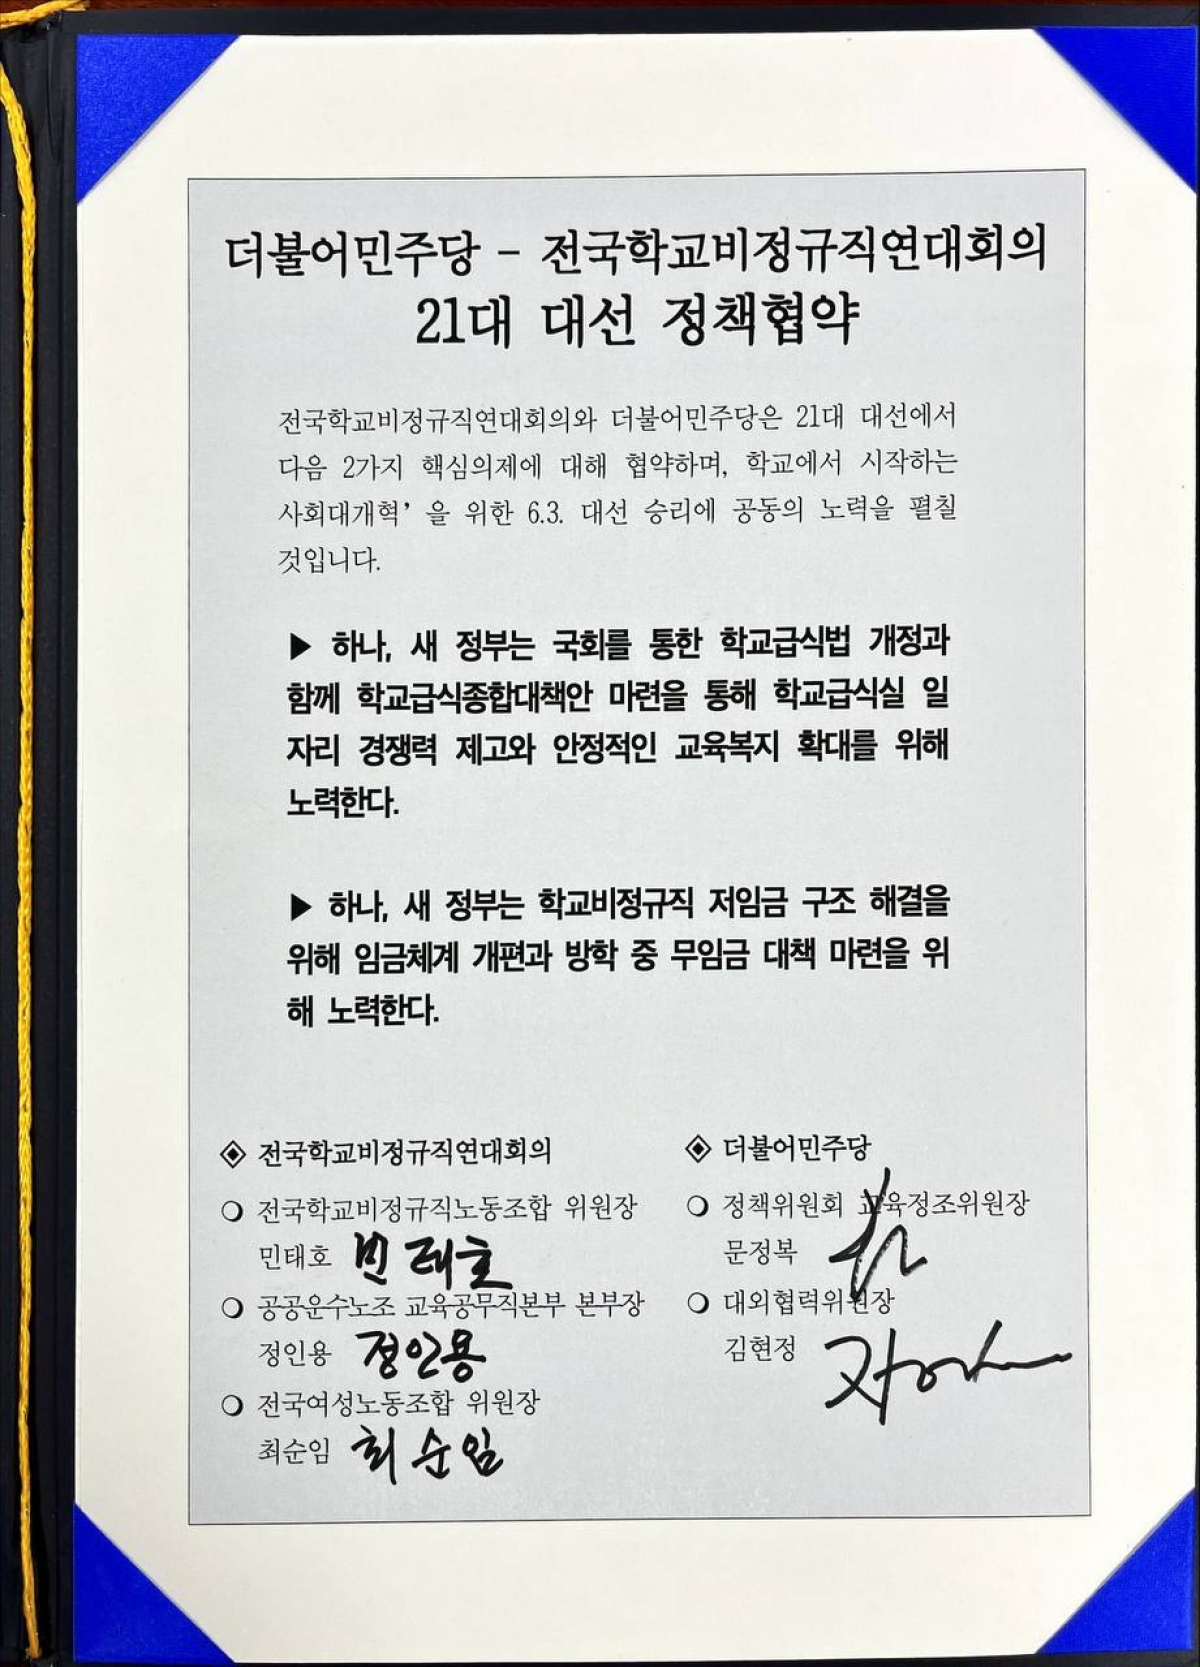 더불어민주당 - 전국학교비정규직연대회의
21대 대선 정책협약
전국학교비정규직연대회의와 더불어민주당은 21대 대선에서
다음 2가지 핵심의제에 대해 협약하며, 학교에서 시작하는
사회대개혁’을 위한 6.3. 대선 승리에 공동의 노력을 펼칠
것입니다.
▶ 하나, 새 정부는 국회를 통한 학교급식법 개정과
함께 학교급식종합대책안 마련을 통해 학교급식실 일
자리 경쟁력 제고와 안정적인 교육복지 확대를 위해
노력한다.
▶ 하나, 새 정부는 학교비정규직 저임금 구조 해결을
위해 임금체계 개편과 방학 중 무임금 대책 마련을 위
해 노력한다.
◈ 전국학교비정규직연대회의
○ 전국학교비정규직노동조합 위원장
민태호 민태호
○ 공공운수노조 교육공무직본부 본부장
정인용 정인용
○ 전국여성노동조합 위원장
최순임 최순임
◈ 더불어민주당
○ 정책위원회 교육정조위원장
문정복
○ 대외협력위원장
김현정